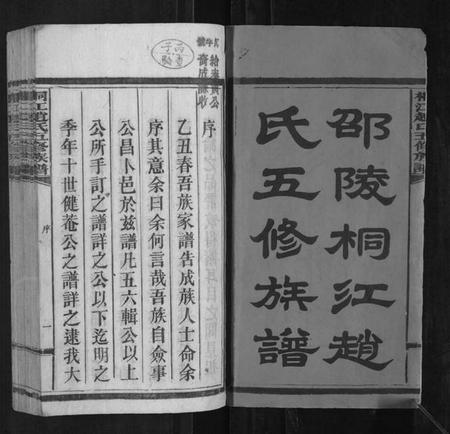 邵陵桐江趙
氏五修族譜
桐江趙氏五修族譜
序
乙丑春吾族家譜告成族人士命余
序其意余曰余何言哉吾族自僉事
公昌卜邑於玆譜凡五六輯公以上
公所手訂之譜詳之公以下迄明之
季年十世健菴公之譜詳之逮我大
桐江趙氏五修族譜
序
一